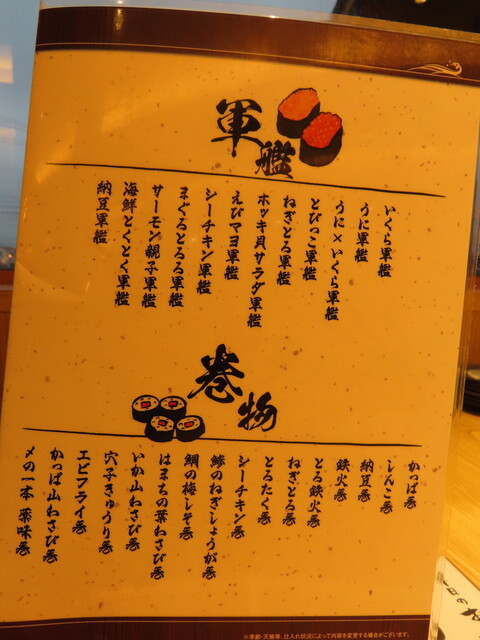 軍艦
いくら軍艦
うに軍艦
うに×いくら軍艦
とびっこ軍艦
ねぎとろ軍艦
ホッキ貝サラダ軍艦
えびマヨ軍艦
シーチキン軍艦
まぐろとろろ軍艦
サーモン親子軍艦
海鮮とくとく軍艦
納豆軍艦
巻物
かっぱ巻
しんこ巻
納豆巻
鉄火巻
とろ鉄火巻
ねぎとろ巻
とろたく巻
シーチキン巻
鯵のねぎしょうが巻
鯛の梅しそ巻
はまちの葉わさび巻
いか山わさび巻
穴子きゅうり巻
エビフライ巻
かっぱ山わさび巻
〆の一本 薬味巻
※季節・天候等、仕入れ状況によって内容を変更する場合がございます。